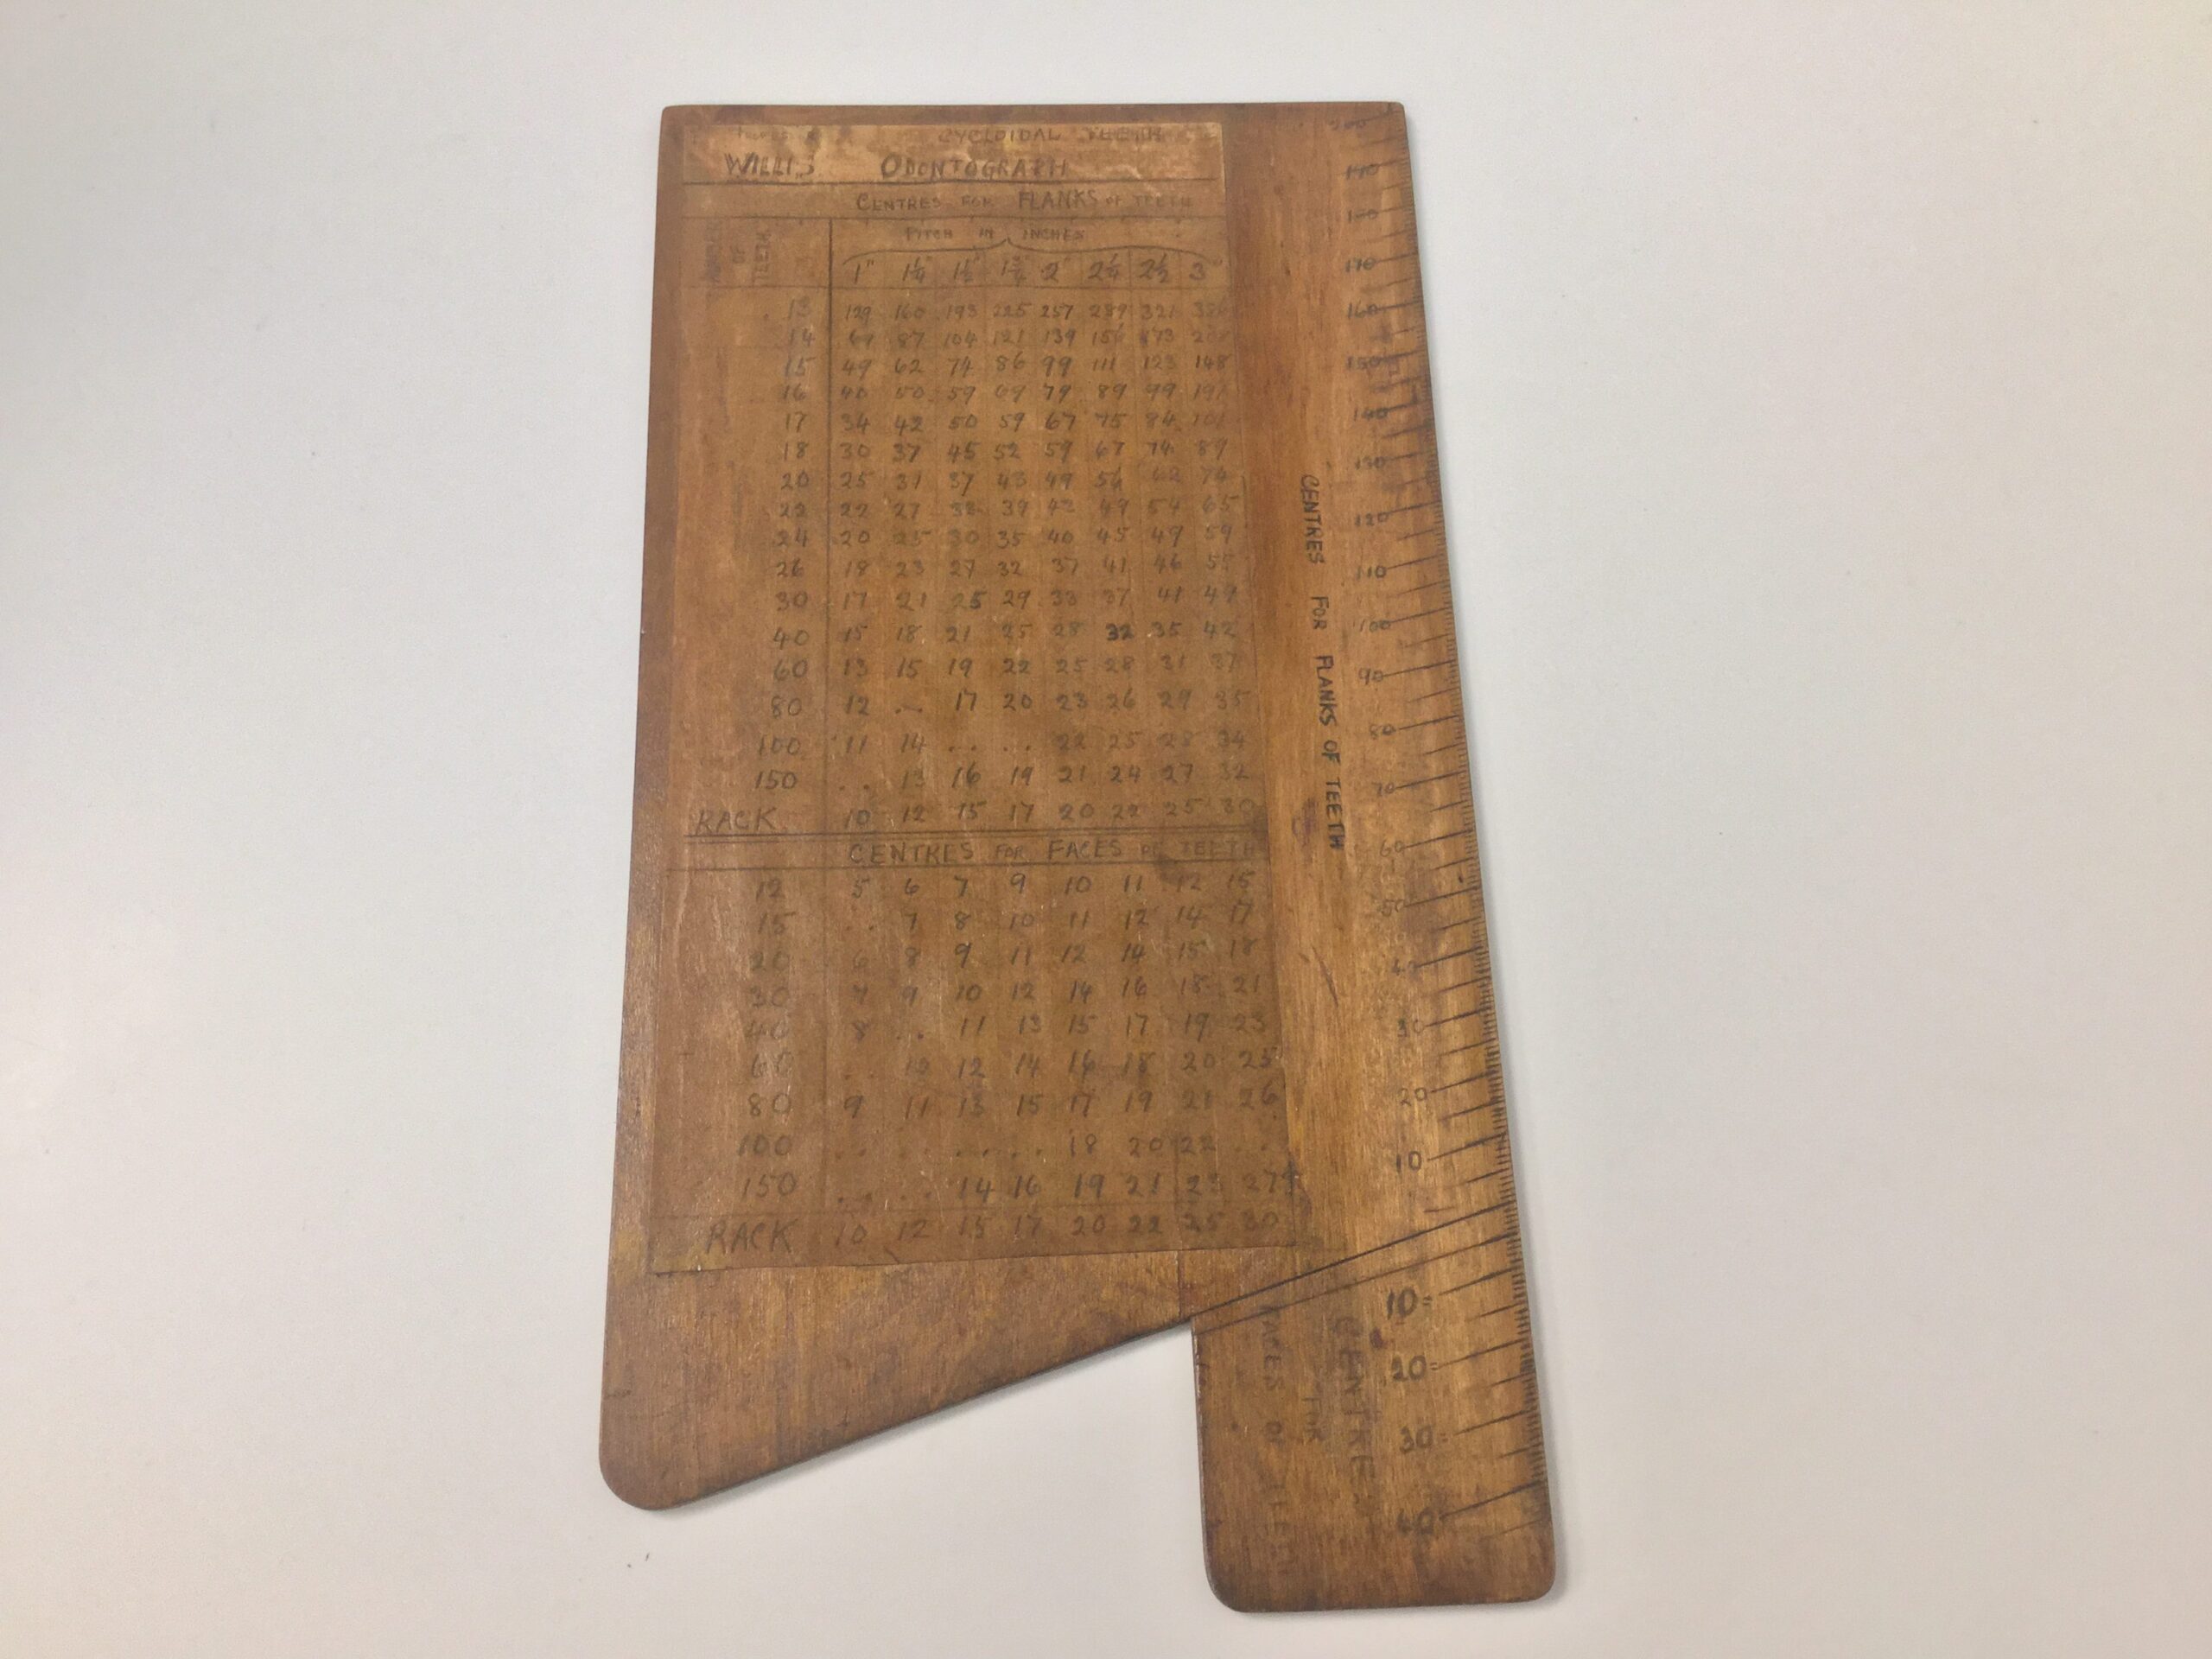 CYCLOIDAL TEETH
WILLIS ODONTOGRAPH
CENTRES FOR FLANKS OF TEETH
OF TEETH
PITCH IN INCHES
1" 1¼ 1½" 1¾ 2" 2¼ 2½ 3"
13 129 160 193 225 257 289 321
14 87 104 121 139 156 173
15 49 62 74 86 99 111 123 148
16 40 50 59 69 79 89 99
17 34 42 50 59 67 75 84 101
18 30 37 45 52 59 67 74 89
20 25 31 37 43 49 56 62 74
22 22 27 39 49 54 65
24 20 25 30 35 40 45 49 59
26 18 23 27 32 37 41 46 55
30 17 21 25 29 33 37 41 49
40 15 18 21 25 28 32 35 42
60 13 15 19 22 25 28 31 37
80 12 .. 17 20 23 26 29 35
100 11 14 . . . . 22 25 28 34
150 . . 13 16 19 21 24 27 32
RACK 10 12 15 17 20 22 25 30
CENTRES FOR FACES OF TEETH
12 5 6 7 9 10 11 12 15
15 . . 7 8 10 11 12 14 17
20 6 8 9 11 12 14 15 18
30 7 9 10 12 14 16 18 21
40 8 . . 11 13 15 17 19 23
60 . . 10 12 14 16 18 20 25
80 9 11 13 15 17 19 21 26
100 . . . . . . . . 18 20 22 . .
150 . . . . 14 16 19 21 23 27
RACK 10 12 15 17 20 22 25 30
CENTRES FOR FLANKS OF TEETH
200
190
180
170
160
150
140
130
120
110
100
90
80
70
60
50
40
30
20
10
10
20
30
40
CENTRES
FOR
FACES OF TEETH